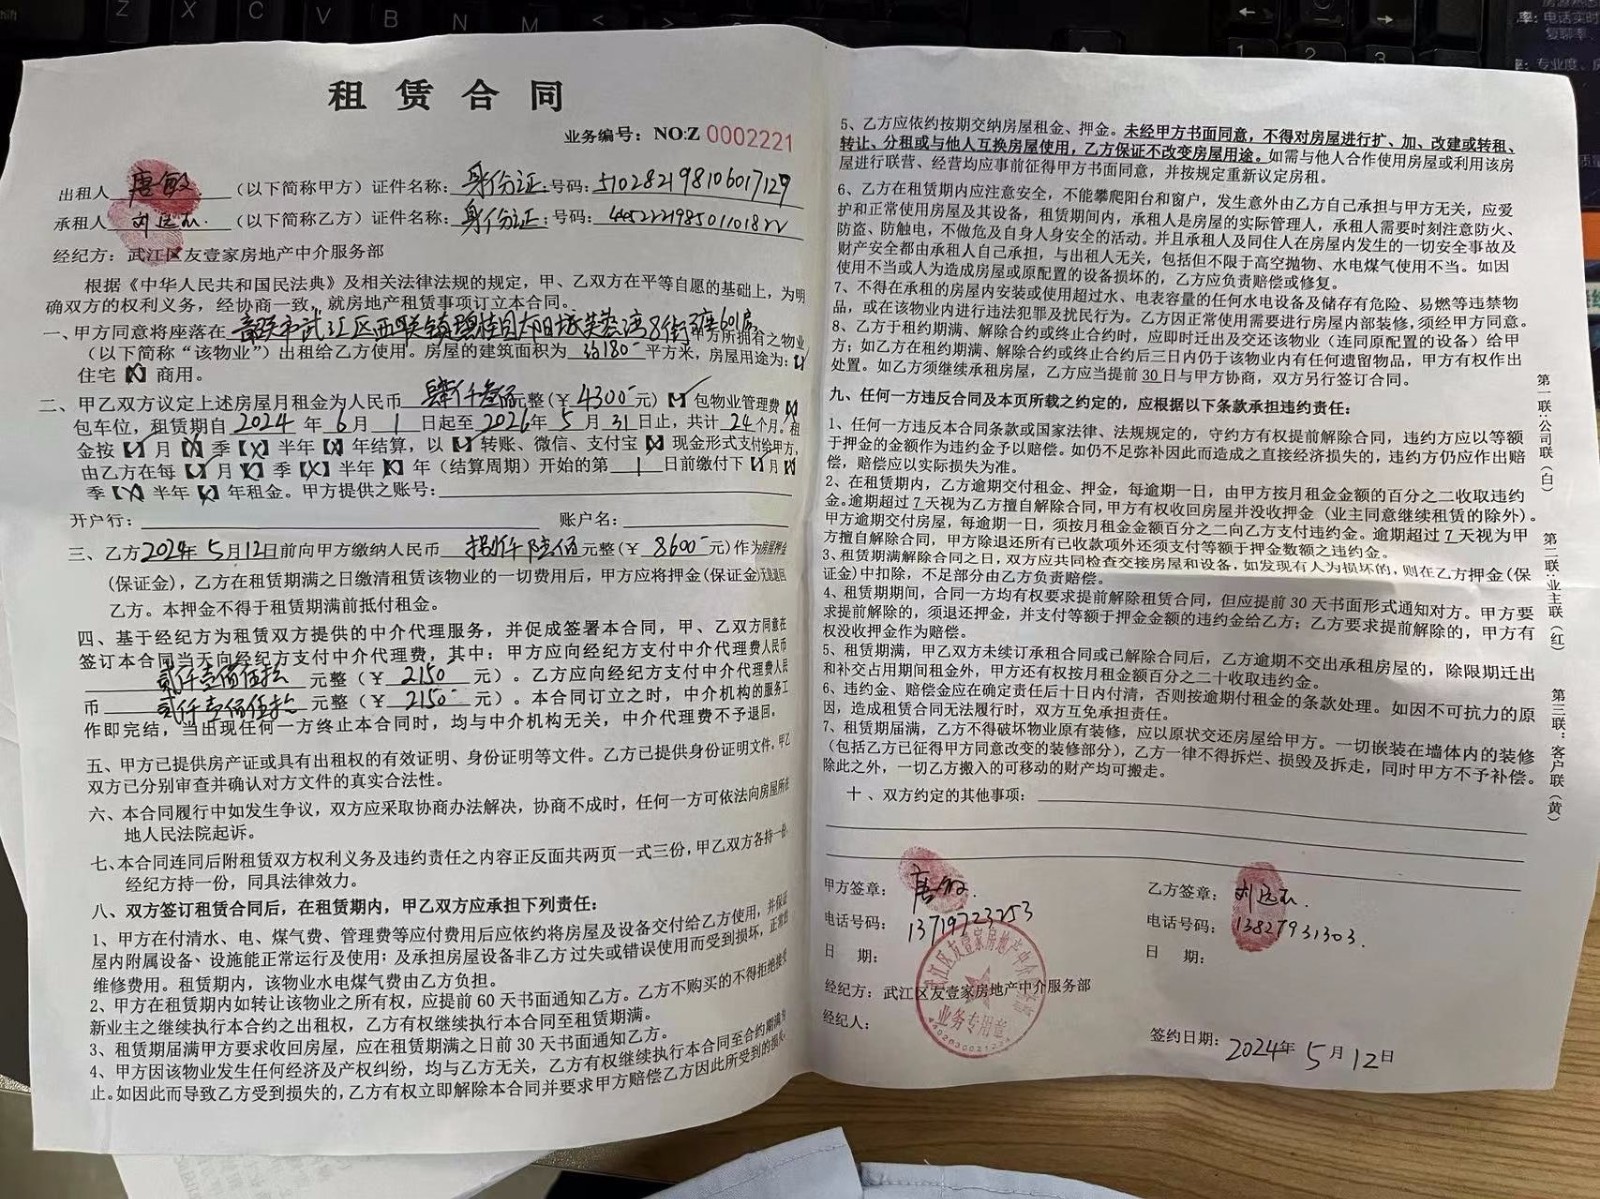 租 赁 合 同
业务编号：NO:Z 0002221
出租人 唐敏 （以下简称甲方）证件名称：身份证 号码：510282198106017129
承租人 刘远 （以下简称乙方）证件名称：身份证 号码：
经纪方：武江区友壹家房地产中介服务部
根据《中华人民共和国民法典》及相关法律法规的规定，甲、乙双方在平等自愿的基础上，为明
确双方的权利义务，经协商一致，就房地产租赁事项订立本合同。
一、甲方同意将座落在 韶关市武江区西联镇碧桂园太阳城芙蓉湾8街 座601房 甲方所拥有之物业
（以下简称“该物业”）出租给乙方使用。房屋的建筑面积为 约180 平方米，房屋用途为：【√】
住宅【×】商用。
二、甲乙双方议定上述房屋月租金为人民币 肆仟叁佰元整（￥4300 元）【√】包物业管理费【×】
包车位，租赁期自 2024 年 6 月 1 日起至 2026 年 5 月 31 日止，共计 24 个月。租
金按【√】月【×】季【×】半年【×】年结算，以【√】转账、微信、支付宝【×】现金形式支付给甲方，
由乙方在每【√】月【×】季【×】半年【×】年（结算周期）开始的第 1 日前缴付下【√】月【×】
季【×】半年【×】年租金。甲方提供之账号：
开户行： 账户名：
三、乙方2024年5月12日前向甲方缴纳人民币 捌仟陆佰元整（￥ 8600 元）作为房屋押金
（保证金），乙方在租赁期满之日缴清租赁该物业的一切费用后，甲方应将押金(保证金)无息退回
乙方。本押金不得于租赁期满前抵付租金。
四、基于经纪方为租赁双方提供的中介代理服务，并促成签署本合同，甲、乙双方同意在
签订本合同当天向经纪方支付中介代理费，其中：甲方应向经纪方支付中介代理费人民币
贰仟壹佰伍拾 元整（￥ 2150 元）。乙方应向经纪方支付中介代理费人民
币 贰仟壹佰伍拾 元整（￥ 2150 元）。本合同订立之时，中介机构的服务工
作即完结，当出现任何一方终止本合同时，均与中介机构无关，中介代理费不予退回。
五、甲方已提供房产证或具有出租权的有效证明、身份证明等文件。乙方已提供身份证明文件。甲乙
双方已分别审查并确认对方文件的真实合法性。
六、本合同履行中如发生争议，双方应采取协商办法解决，协商不成时，任何一方可依法向房屋所在
地人民法院起诉。
七、本合同连同后附租赁双方权利义务及违约责任之内容正反面共两页一式三份，甲乙双方各持一份
经纪方持一份，同具法律效力。
八、双方签订租赁合同后，在租赁期内，甲乙双方应承担下列责任：
1、甲方在付清水、电、煤气费、管理费等应付费用后应依约将房屋及设备交付给乙方使用，并保证
屋内附属设备、设施能正常运行及使用；及承担房屋设备非乙方过失或错误使用而受到损坏，正常的
维修费用。租赁期内，该物业水电煤气费由乙方负担。
2、甲方在租赁期内如转让该物业之所有权，应提前 60 天书面通知乙方。乙方不购买的不得拒绝接受
新业主之继续执行本合约之出租权，乙方有权继续执行本合同至租赁期满。
3、租赁期届满甲方要求收回房屋，应在租赁期满之日前 30 天书面通知乙方。
4、甲方因该物业发生任何经济及产权纠纷，均与乙方无关，乙方有权继续执行本合同至合约期满为
止。如因此而导致乙方受到损失的，乙方有权立即解除本合同并要求甲方赔偿乙方因此所受到的损失。
5、乙方应依约按期交纳房屋租金、押金。未经甲方书面同意，不得对房屋进行扩、加、改建或转租、
转让、分租或与他人互换房屋使用，乙方保证不改变房屋用途。如需与他人合作使用房屋或利用该房
屋进行联营、经营均应事前征得甲方书面同意，并按规定重新议定房租。
6、乙方在租赁期内应注意安全，不能攀爬阳台和窗户，发生意外由乙方自己承担与甲方无关，应爱
护和正常使用房屋及其设备，租赁期间内，承租人是房屋的实际管理人，承租人需要时刻注意防火、
防盗、防触电，不做危及自身人身安全的活动。并且承租人及同住人在房屋内发生的一切安全事故及
财产安全都由承租人自己承担，与出租人无关，包括但不限于高空抛物、水电煤气使用不当。如因
使用不当或人为造成房屋或原配置的设备损坏的，乙方应负责赔偿或修复。
7、不得在承租的房屋内安装或使用超过水、电表容量的任何水电设备及储存有危险、易燃等违禁物
品，或在该物业内进行违法犯罪及扰民行为。乙方因正常使用需要进行房屋内部装修，须经甲方同意。
8、乙方于租约期满、解除合约或终止合约时，应即时迁出及交还该物业（连同原配置的设备）给甲
方；如乙方在租约期满、解除合约或终止合约后三日内仍于该物业内有任何遗留物品，甲方有权作出
处置。如乙方须继续承租房屋，乙方应当提前 30 日与甲方协商，双方另行签订合同。
九、任何一方违反合同及本页所载之约定的，应根据以下条款承担违约责任：
1、任何一方违反本合同条款或国家法律、法规规定的，守约方有权提前解除合同，违约方应以等额
于押金的金额作为违约金予以赔偿。如仍不足弥补因此而造成之直接经济损失的，违约方仍应作出赔
偿，赔偿应以实际损失为准。
2、在租赁期内，乙方逾期交付租金、押金，每逾期一日，由甲方按月租金金额的百分之二收取违约
金。逾期超过 7 天视为乙方擅自解除合同，甲方有权收回房屋并没收押金（业主同意继续租赁的除外）。
甲方逾期交付房屋，每逾期一日，须按月租金金额百分之二向乙方支付违约金。逾期超过 7 天视为甲
方擅自解除合同，甲方除退还所有已收款项外还须支付等额于押金数额之违约金。
3、租赁期满解除合同之日，双方应共同检查交接房屋和设备，如发现有人为损坏的，则在乙方押金(保
证金)中扣除，不足部分由乙方负责赔偿。
4、租赁期期间，合同一方均有权要求提前解除租赁合同，但应提前 30 天书面形式通知对方。甲方要
求提前解除的，须退还押金，并支付等额于押金金额的违约金给乙方；乙方要求提前解除的，甲方有
权没收押金作为赔偿。
5、租赁期满，甲乙双方未续订承租合同或已解除合同后，乙方逾期不交出承租房屋的，除限期迁出
和补交占用期间租金外，甲方还有权按月租金额百分之二十收取违约金。
6、违约金、赔偿金应在确定责任后十日内付清，否则按逾期付租金的条款处理。如因不可抗力的原
因，造成租赁合同无法履行时，双方互免承担责任。
7、租赁期届满，乙方不得破坏物业原有装修，应以原状交还房屋给甲方。一切嵌装在墙体内的装修
（包括乙方已征得甲方同意改变的装修部分），乙方一律不得拆烂、损毁及拆走，同时甲方不予补偿。
除此之外，一切乙方搬入的可移动的财产均可搬走。
十、双方约定的其他事项：
甲方签章：唐敏 乙方签章：刘远
电话号码：13719723253 电话号码：13827931303
日 期： 日 期：
经纪方：武江区友壹家房地产中介服务部
经纪人：
签约日期：2024年 5 月 12 日
武江区友壹家房地产中介服务部
业务专用章
第一联：公司联（白）
第二联：业主联（红）
第三联：客户联（黄）